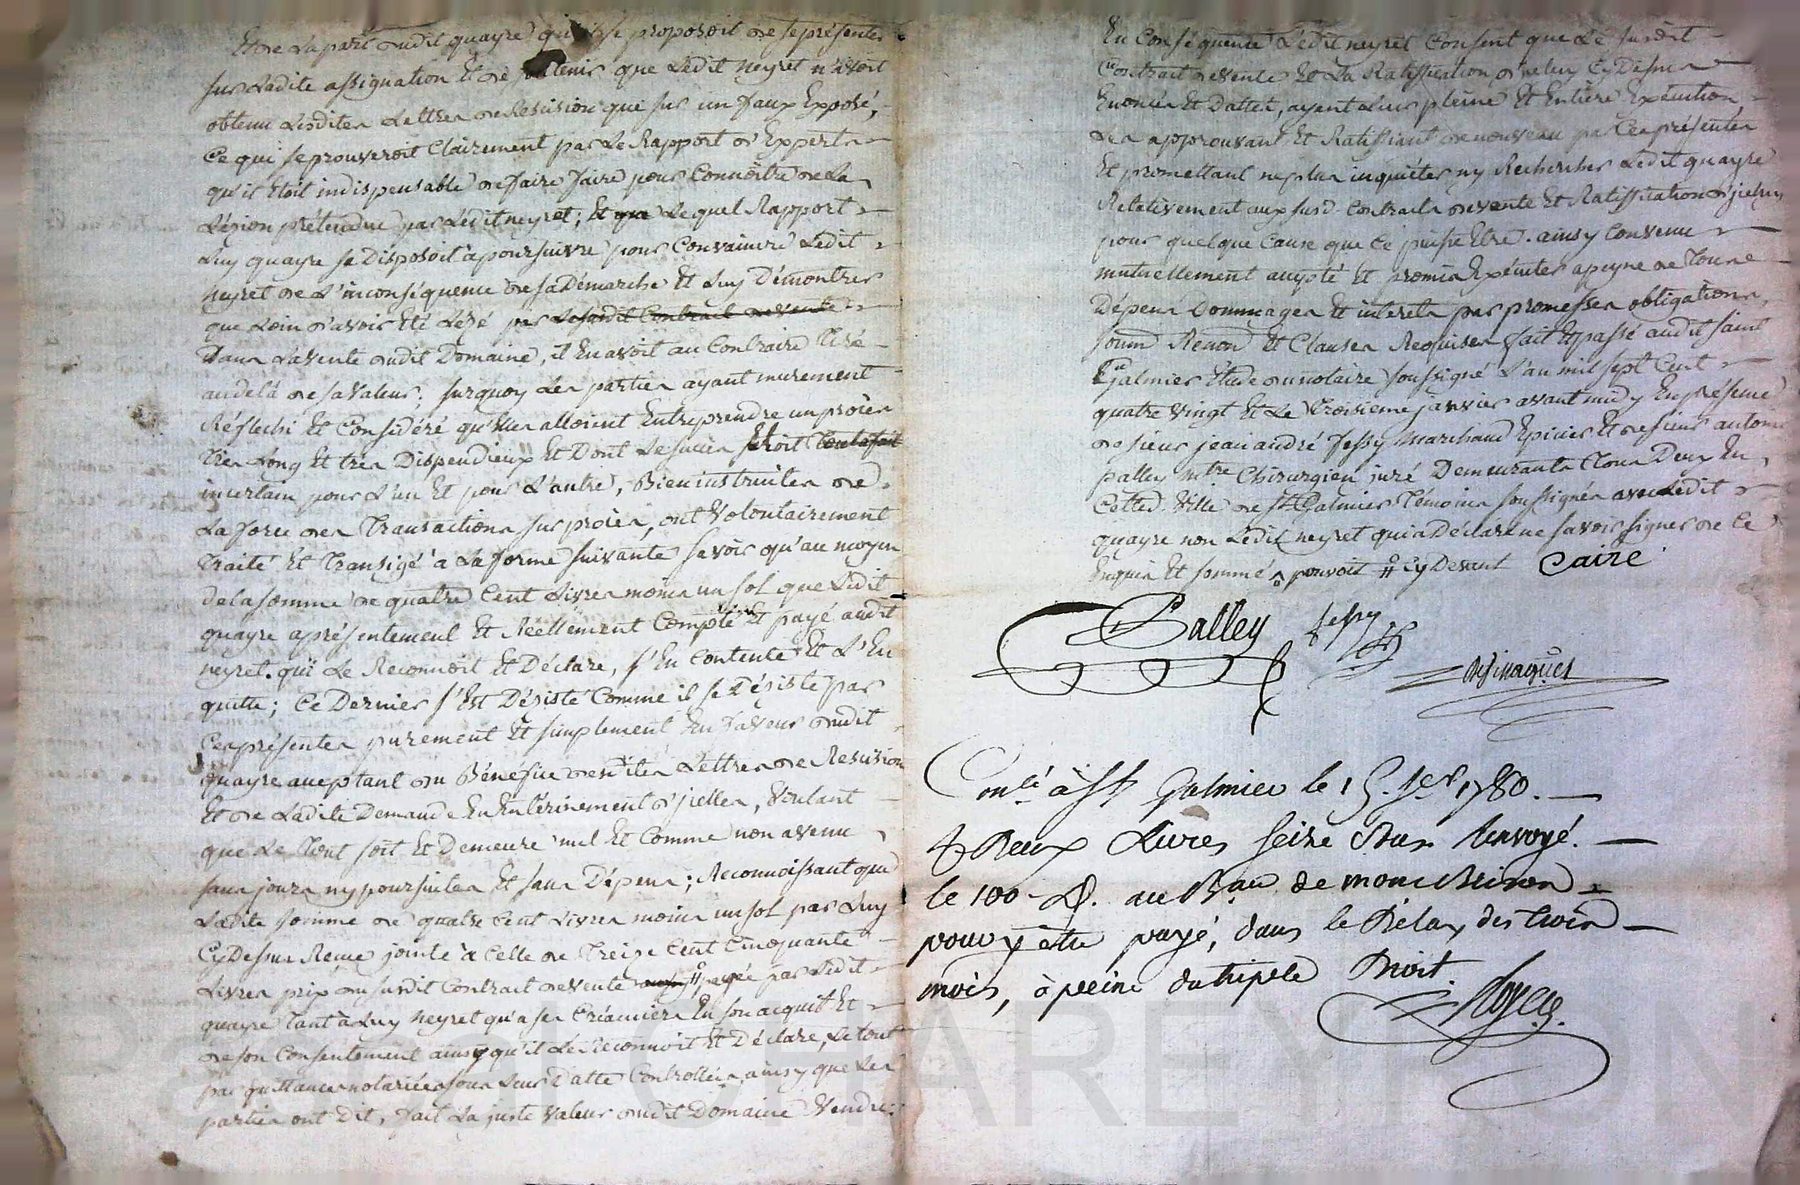 Et de la part dudit quayre qu'il se proposoit de se présenter
sur ladite assignation Et de obtenir que Ledit neyret n'avoit
obtenu Lesdites Lettres de Rescision que sur un faux Exposé,
Ce qui se prouveroit Clairement par Le Rapport d'Experts
qu'il Etoit indispensable de faire faire pour Connoître de La
Lézion prétendue par Ledit neyret; Et que Lequel Rapport
Luy quayre se Disposoit à poursuivre pour Convaincre Ledit
neyret de L'inconséquence de sa Démarche Et Luy Démontrer
que Loin d'avoir Eté Lézé par Lesusdit Contrait de vente
Dans La vente dudit Domaine, il En avoit au Contraire tiré
au delà de sa valeur; surquoy Les parties ayant murement
Réfléchi Et Considéré qu'Elles alloient Entreprendre un procès
très Long Et très Dispendieux Et Dont Le succès Etoit toutafait
incertain pour L'un Et pour L'autre, Bien instruites de
La force des transactions sur procès, ont volontairement
traité Et transigé à La forme suivante savoir qu'au moyen
de la somme de quatre Cent Livres moins un sol que Ledit
quayre a présentement Et Réellement Compté Et payé audit
neyret qui Le Reconnoit Et Déclare, s'En Contente Et L'En
quitte; Ce Dernier s'Est Désisté Comme il se Désiste par
Ces présentes purement Et simplement En faveur dudit
quayre acceptant du Bénéfice desdites Lettres de Rescision
Et de Ladite Demande En Entérinement d'jcelles, voulant
que Le tout soit Et Demeure nul Et Comme non avenu
sans jours ny poursuites Et sans Dépens; Reconnoissant que
Ladite somme de quatre Cent Livres moins un sol par Luy
Cy Dessus Reçue jointe à Celle de treize Cent Cinquante
Livres prix du susdit Contrait de vente payée par Ledit
quayre tant à Luy neyret qu'a ses Créanciers En son acquit Et
de son Consentement ainsy qu'il Le reconnoit Et Déclare, Le tout
par quittances notariées sous Leurs Datte Controllées, ainsy que Les
parties ont Dit, fait La juste valeur dudit Domaine Vendu;
En Conséquence Ledit neyret Consent que Le susdit
Contrait de vente Et La Ratiffication d'iceluy Cy Dessus
Enoncés Et Dattés, ayent Leur pleine Et Entière Exécution,
Les approuvant Et Ratiffiant de nouveau par Ces présentes
Et promettant ne plus inquiéter ny Rechercher Ledit quayre
Relativement aux susd. Contraits de vente Et Ratiffication d'jceluy
pour quelque Cause que Ce puisse Etre. ainsy Convenu
mutuellement accepté Et promis Exécuter a peyne de toues
Dépens Dommages Et interets par promesses obligations,
soum. Renon. Et Clauses Requises fait Et passé audit saint
Galmier Etude du notaire soussigné L'an mil sept Cent
quatre vingt Et Le troisieme janvier avant midy En présence
de sieur jean andré fessy marchand Epicier Et de sieur antoine
palley mtre. Chirurgien juré Demeurants tous Deux En
Cette d. ville de st Galmier témoins soussignés avec Ledit
quayre non Ledit neyret qui a Déclaré ne savoir signer de Ce
Enquis Et sommé pouvoit Cy Devant Caire
Palley fessy
Desinagües
Conlé à St Galmier le 15 Jer 1780.
R Deux Livres seize Sous Renvoyé.
le 100 D. au Bau de montbrison
pour y être payé, dans le Délay des trois
mois, à peine du triple Droit.
CHAREYRON